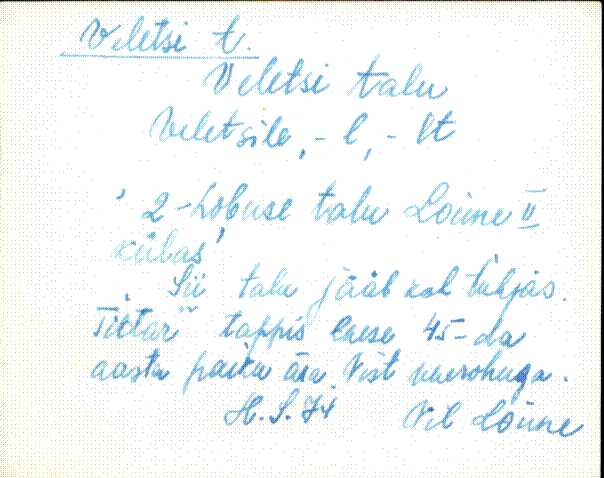 Veletsi t.
Veletsi talu
Veletsile, -l, -lt
' 2-hobuse talu Loüne II
külas'
Sii talu jääb kah tühjäs.
Tüttar" tappis eaese 45-da
aasta paiku ära. Vist
H. S. 74 Vil Loüne